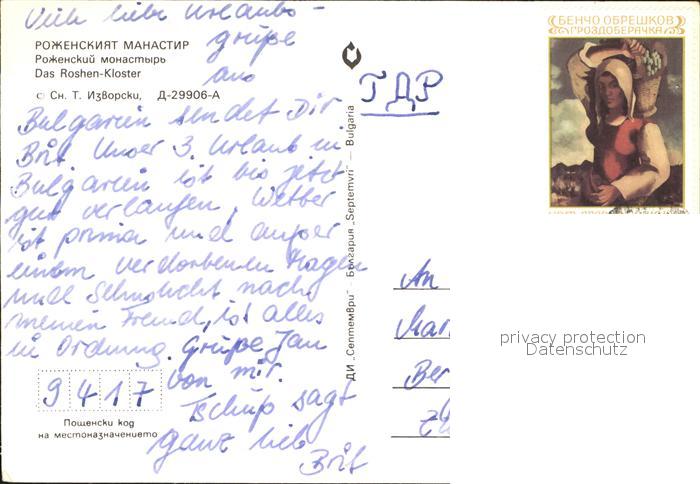 Viele liebe Urlaubs-
grüße
aus
РОЖЕНСКИЯТ МАНАСТИР
Роженский монастырь
Das Roshen-Kloster
© Сн. Т. Изворски, Д-29906-А
Bulgarien sendet Dir
Brit. Unser 3. Urlaub in
Bulgarien ist bis jetzt
gut verlaufen. Wetter
ist prima und außer
einem verdorbenen Magen
und Sehnsucht nach
meinem Freund, ist alles
in Ordnung. Grüße Jan
von mir.
Tschüß sagt
ganz lieb
Brit
9 4 1 7
Пощенски код
на местоназначението
ДИ „Септември" — България „Septemvri" — Bulgaria
БЕНЧО ОБРЕШКОВ
ГРОЗДОБЕРАЧКА
ГДР
An
Mar
Ber
privacy protection
Datenschutz